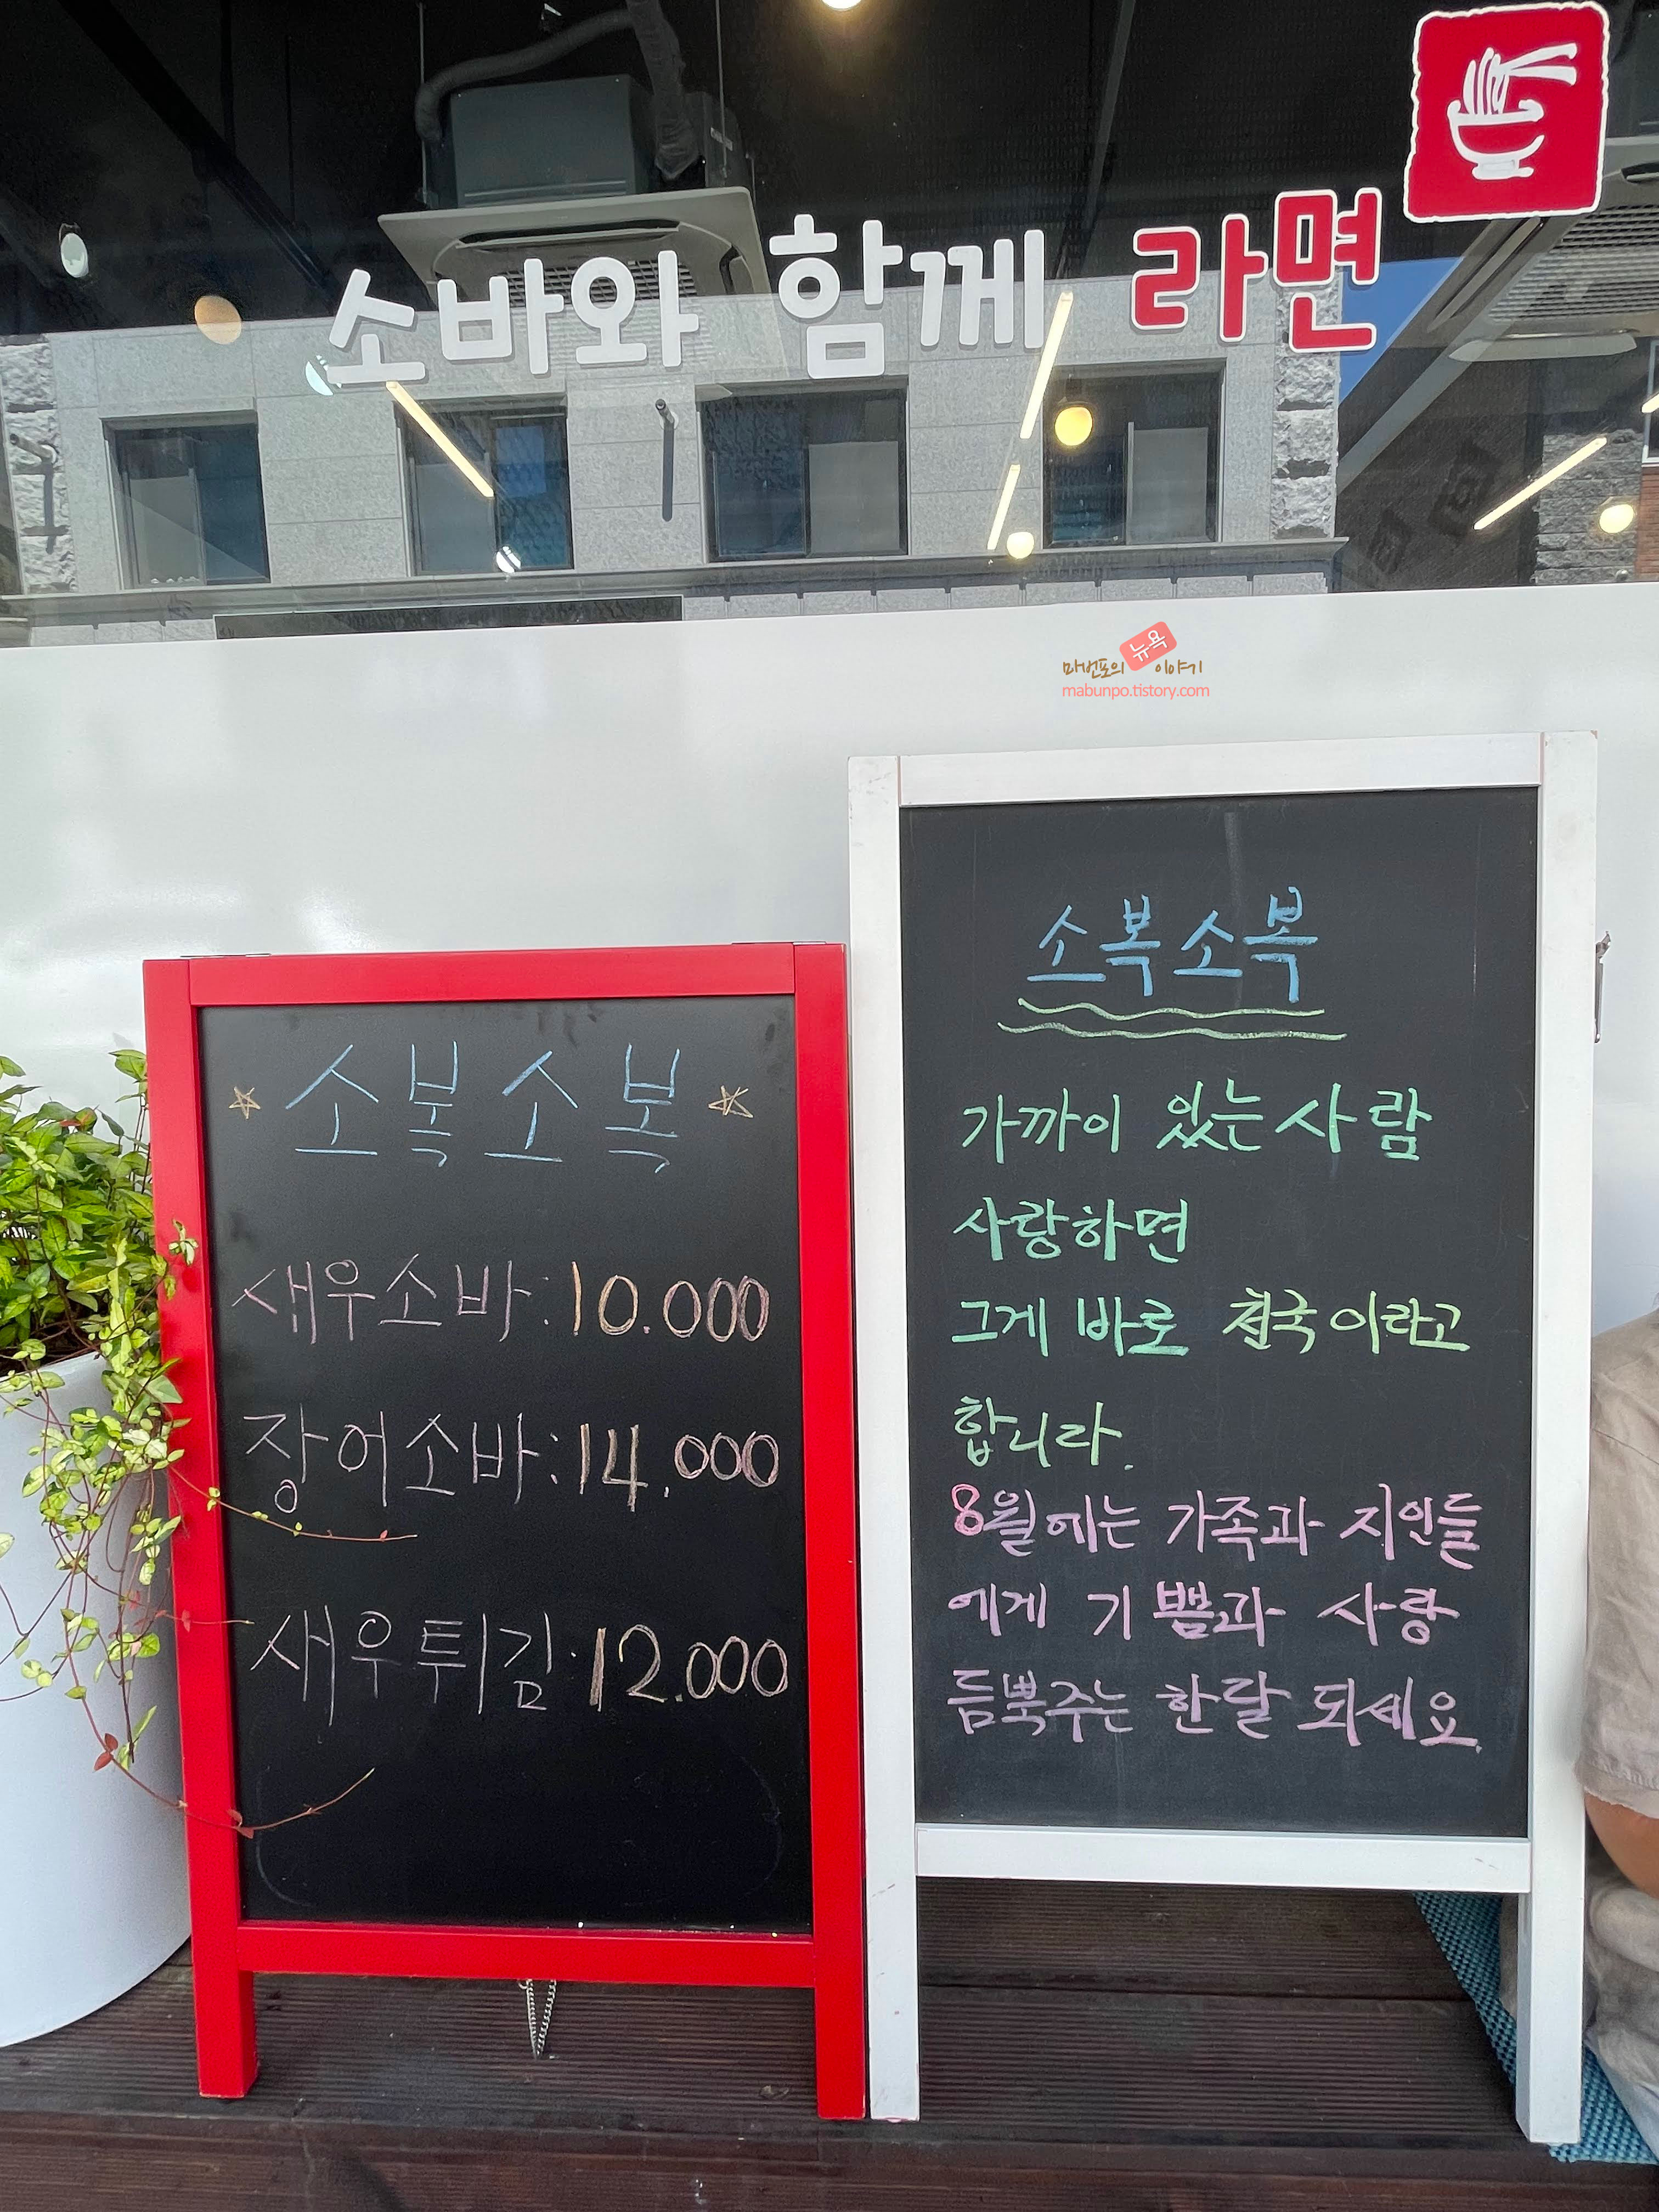 소바와 함께 라면
마번포의 뉴욕 이야기
mabunpo.tistory.com
소복소복
새우소바:10.000
장어소바:14.000
새우튀김:12.000
소복소복
가까이 있는 사람
사랑하면
그게 바로 천국이라고
합니다.
8월에는 가족과 지인들
에게 기쁨과 사랑
듬뿍주는 한달 되세요.